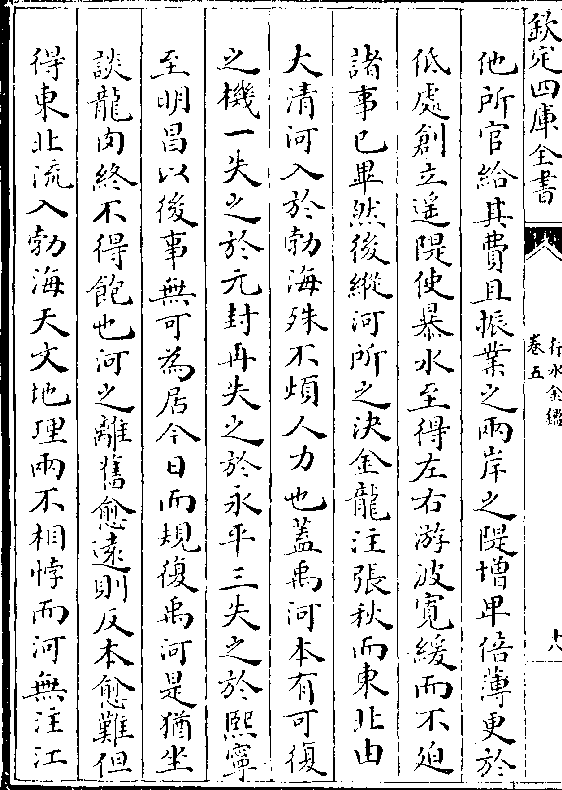 欽定四庫全書
行水金鑑
卷五
十八
他所官給其費且振業之兩岸之隄增卑倍薄更於
低處創立遥隄使暴水至得左右游波寛緩而不迫
諸事已畢然後縱河所之決金龍注張秋而東北由
大清河入於勃海殊不煩人力也蓋禹河本有可復
之機一失之於元封再失之於永平三失之於熙寧
至明昌以後事無可為居今日而規復禹河是猶坐
談龍肉終不得飽也河之離舊愈逺則反本愈難但
得東北流入勃海天文地理兩不相悖而河無注江